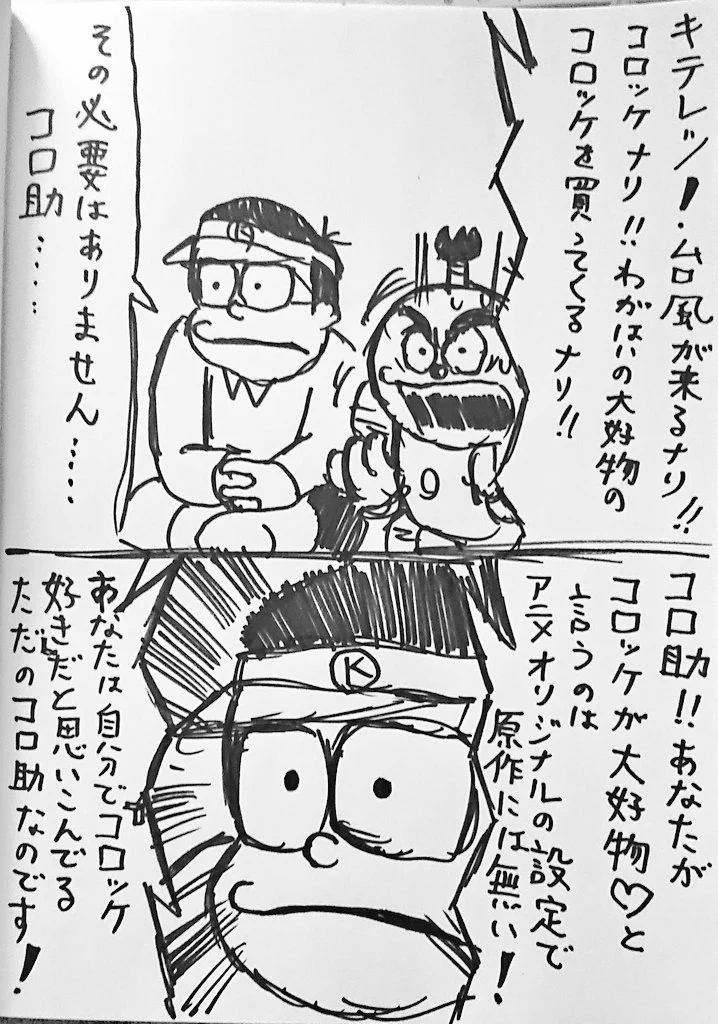 キテレツ!台風が来るナリ!!
コロッケナリ!!わがはいの大好物の
コロッケを買ってくるナリ!!
その必要はありません……
コロ助……
K
コロ助!!あなたが
コロッケが大好物♡と
言うのは
アニメオリジナルの設定で
原作には無い!
K
あなたは自分でコロッケ
好きだと思いこんでる
ただのコロ助なのです!